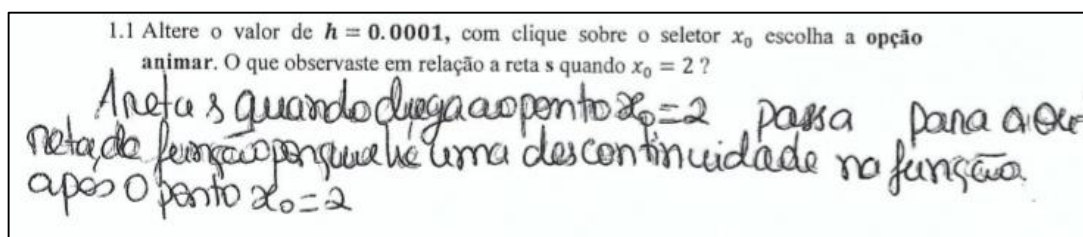 1.1 Altere o valor de h = 0.0001, com clique sobre o seletor x₀ escolha a opção
animar. O que observaste em relação a reta s quando x₀ = 2 ?
A reta s quando chega ao ponto x₀=2 passa para a
reta, da função porque há uma descontinuidade na função
após o ponto x₀=2